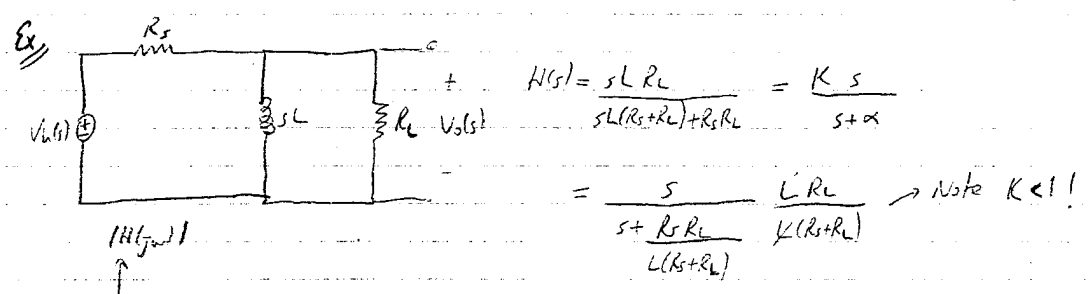 Ex
Rs
Vin(s) + sL RL + Vo(s) -
H(s) = sL RL / (sL(Rs+RL)+RsRL) = K s / (s+α)
= s / (s + RsRL / (L(Rs+RL))) L RL / (L(Rs+RL)) → Note K<1!
|H(jω)|